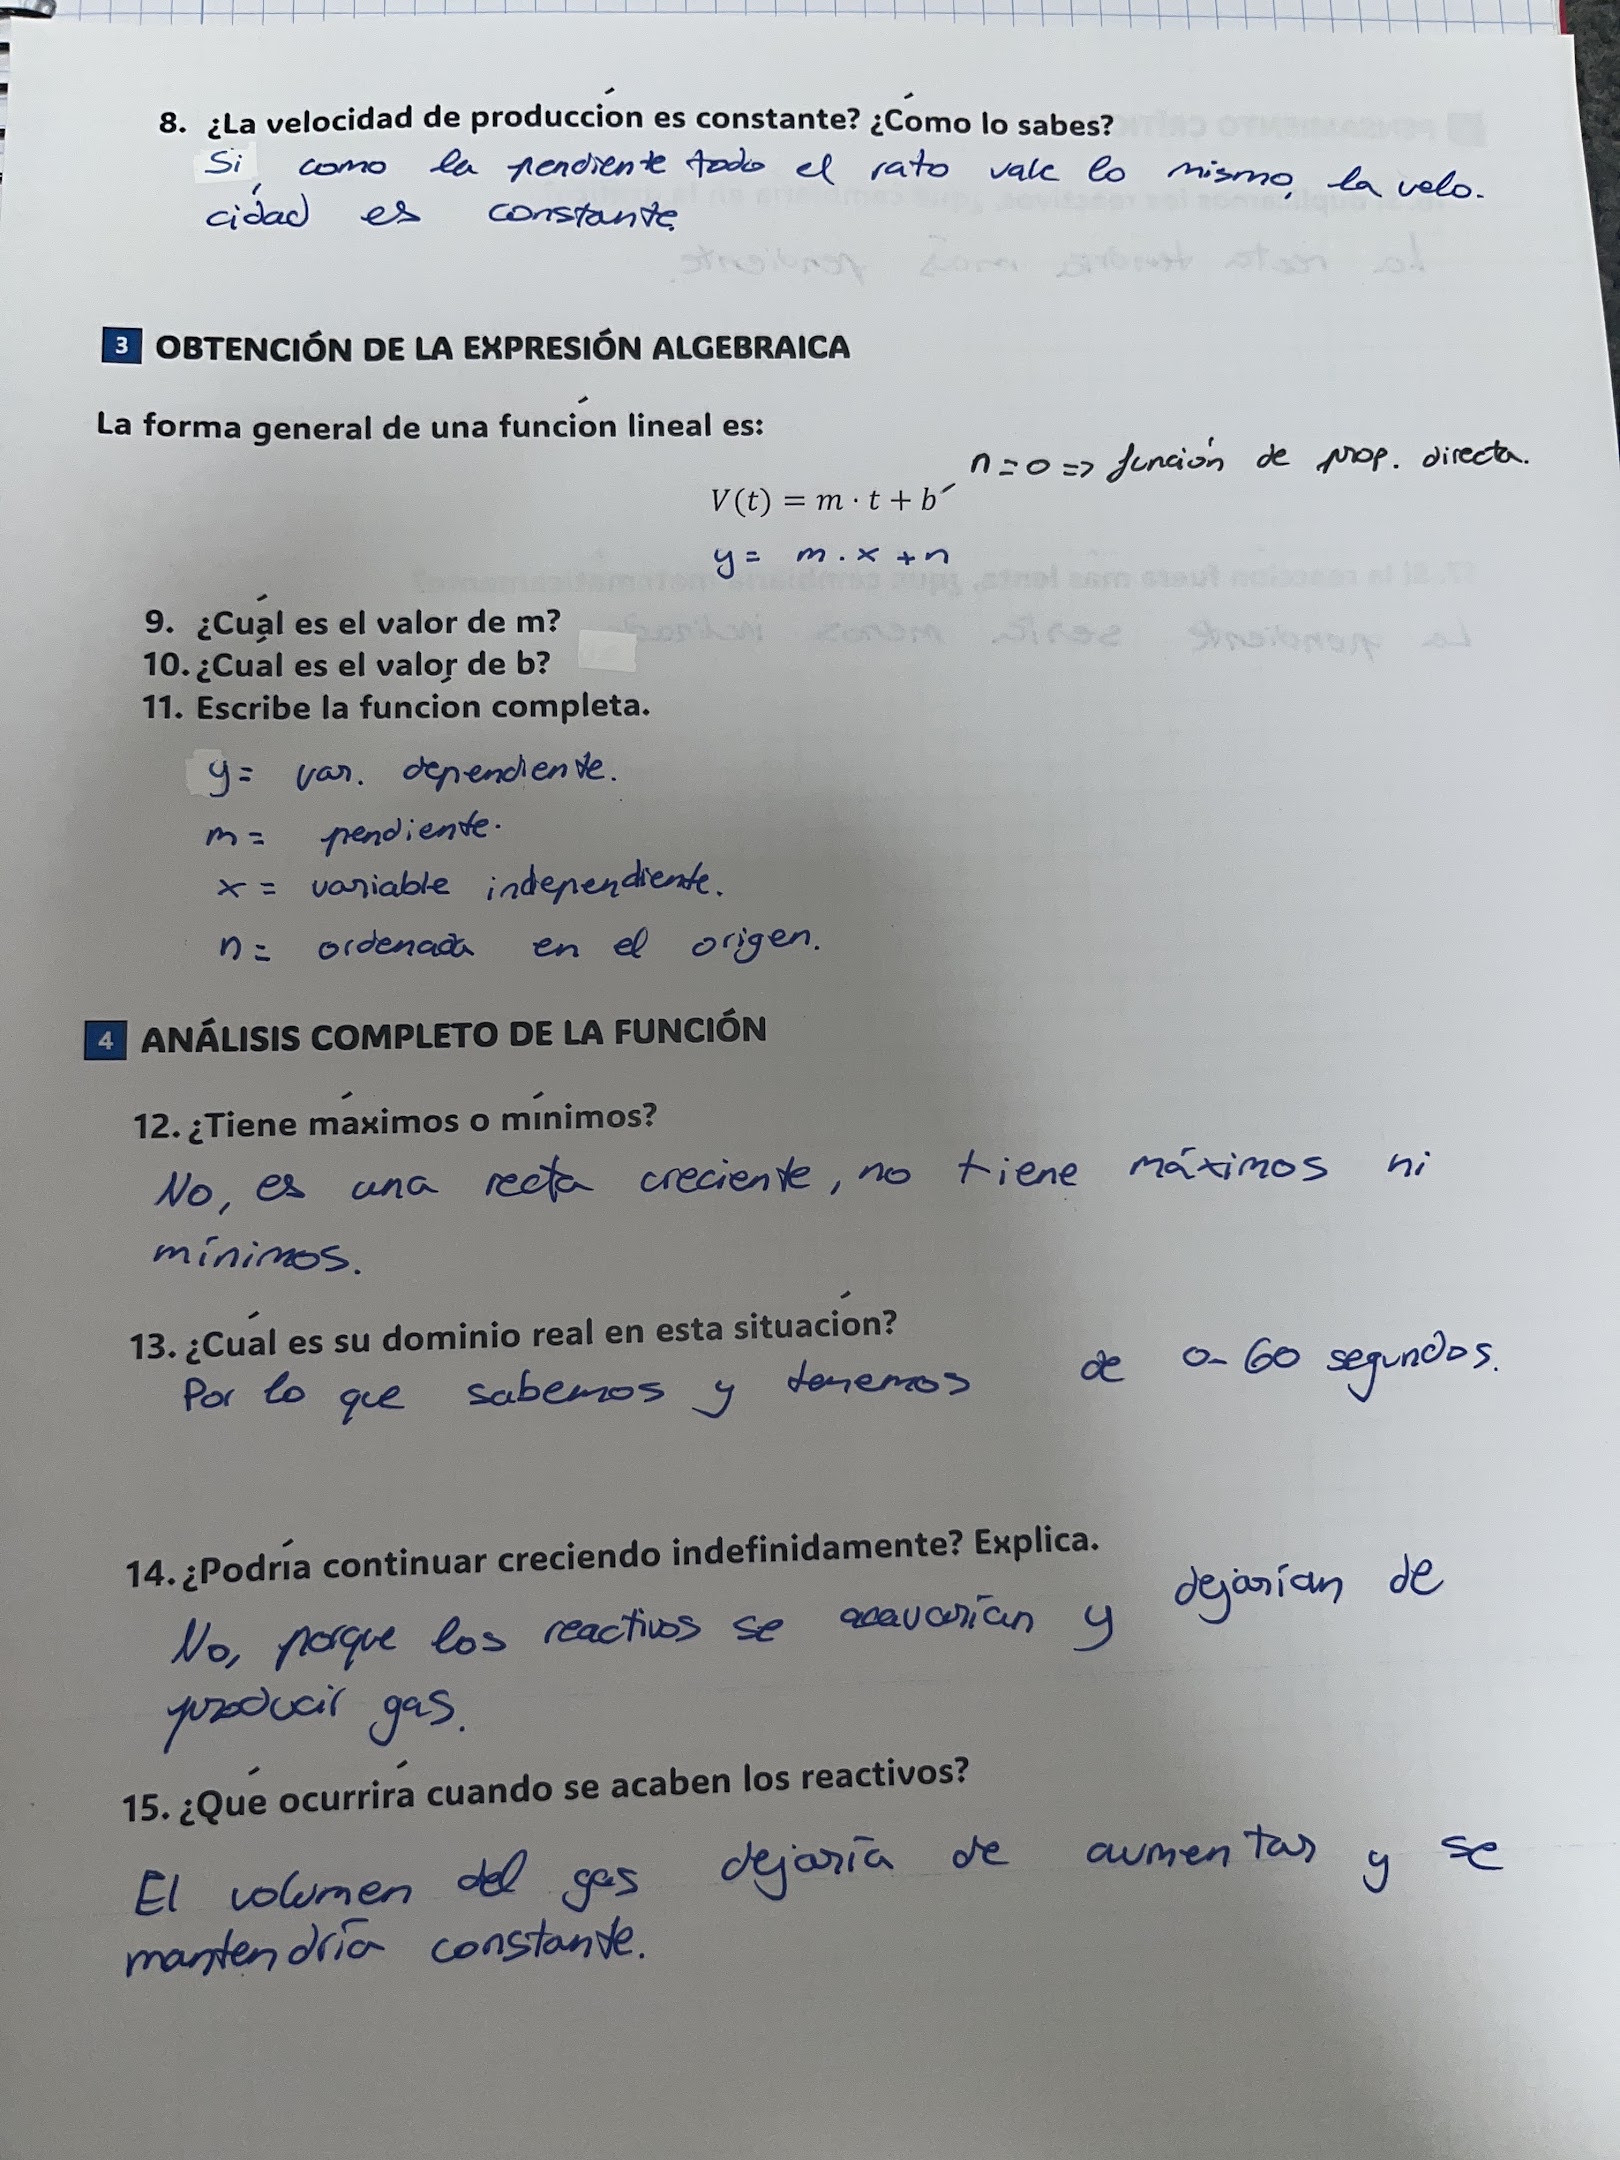 8. ¿La velocidad de producción es constante? ¿Cómo lo sabes?
Si, como la pendiente todo el rato vale lo mismo, la velo-
cidad es constante.
3 OBTENCIÓN DE LA EXPRESIÓN ALGEBRAICA
La forma general de una función lineal es:
n=0 => función de prop. directa.
V(t) = m · t + b
y = m · x + n
9. ¿Cuál es el valor de m?
10. ¿Cuál es el valor de b?
11. Escribe la función completa.
y = var. dependiente.
m = pendiente.
x = variable independiente.
n = ordenada en el origen.
4 ANÁLISIS COMPLETO DE LA FUNCIÓN
12. ¿Tiene máximos o mínimos?
No, es una recta creciente, no tiene máximos ni
mínimos.
13. ¿Cuál es su dominio real en esta situación?
Por lo que sabemos y tenemos de 0-60 segundos.
14. ¿Podría continuar creciendo indefinidamente? Explica.
No, porque los reactivos se acavarían y dejarían de
producir gas.
15. ¿Qué ocurrirá cuando se acaben los reactivos?
El volumen del gas dejaría de aumentar y se
mantendría constante.